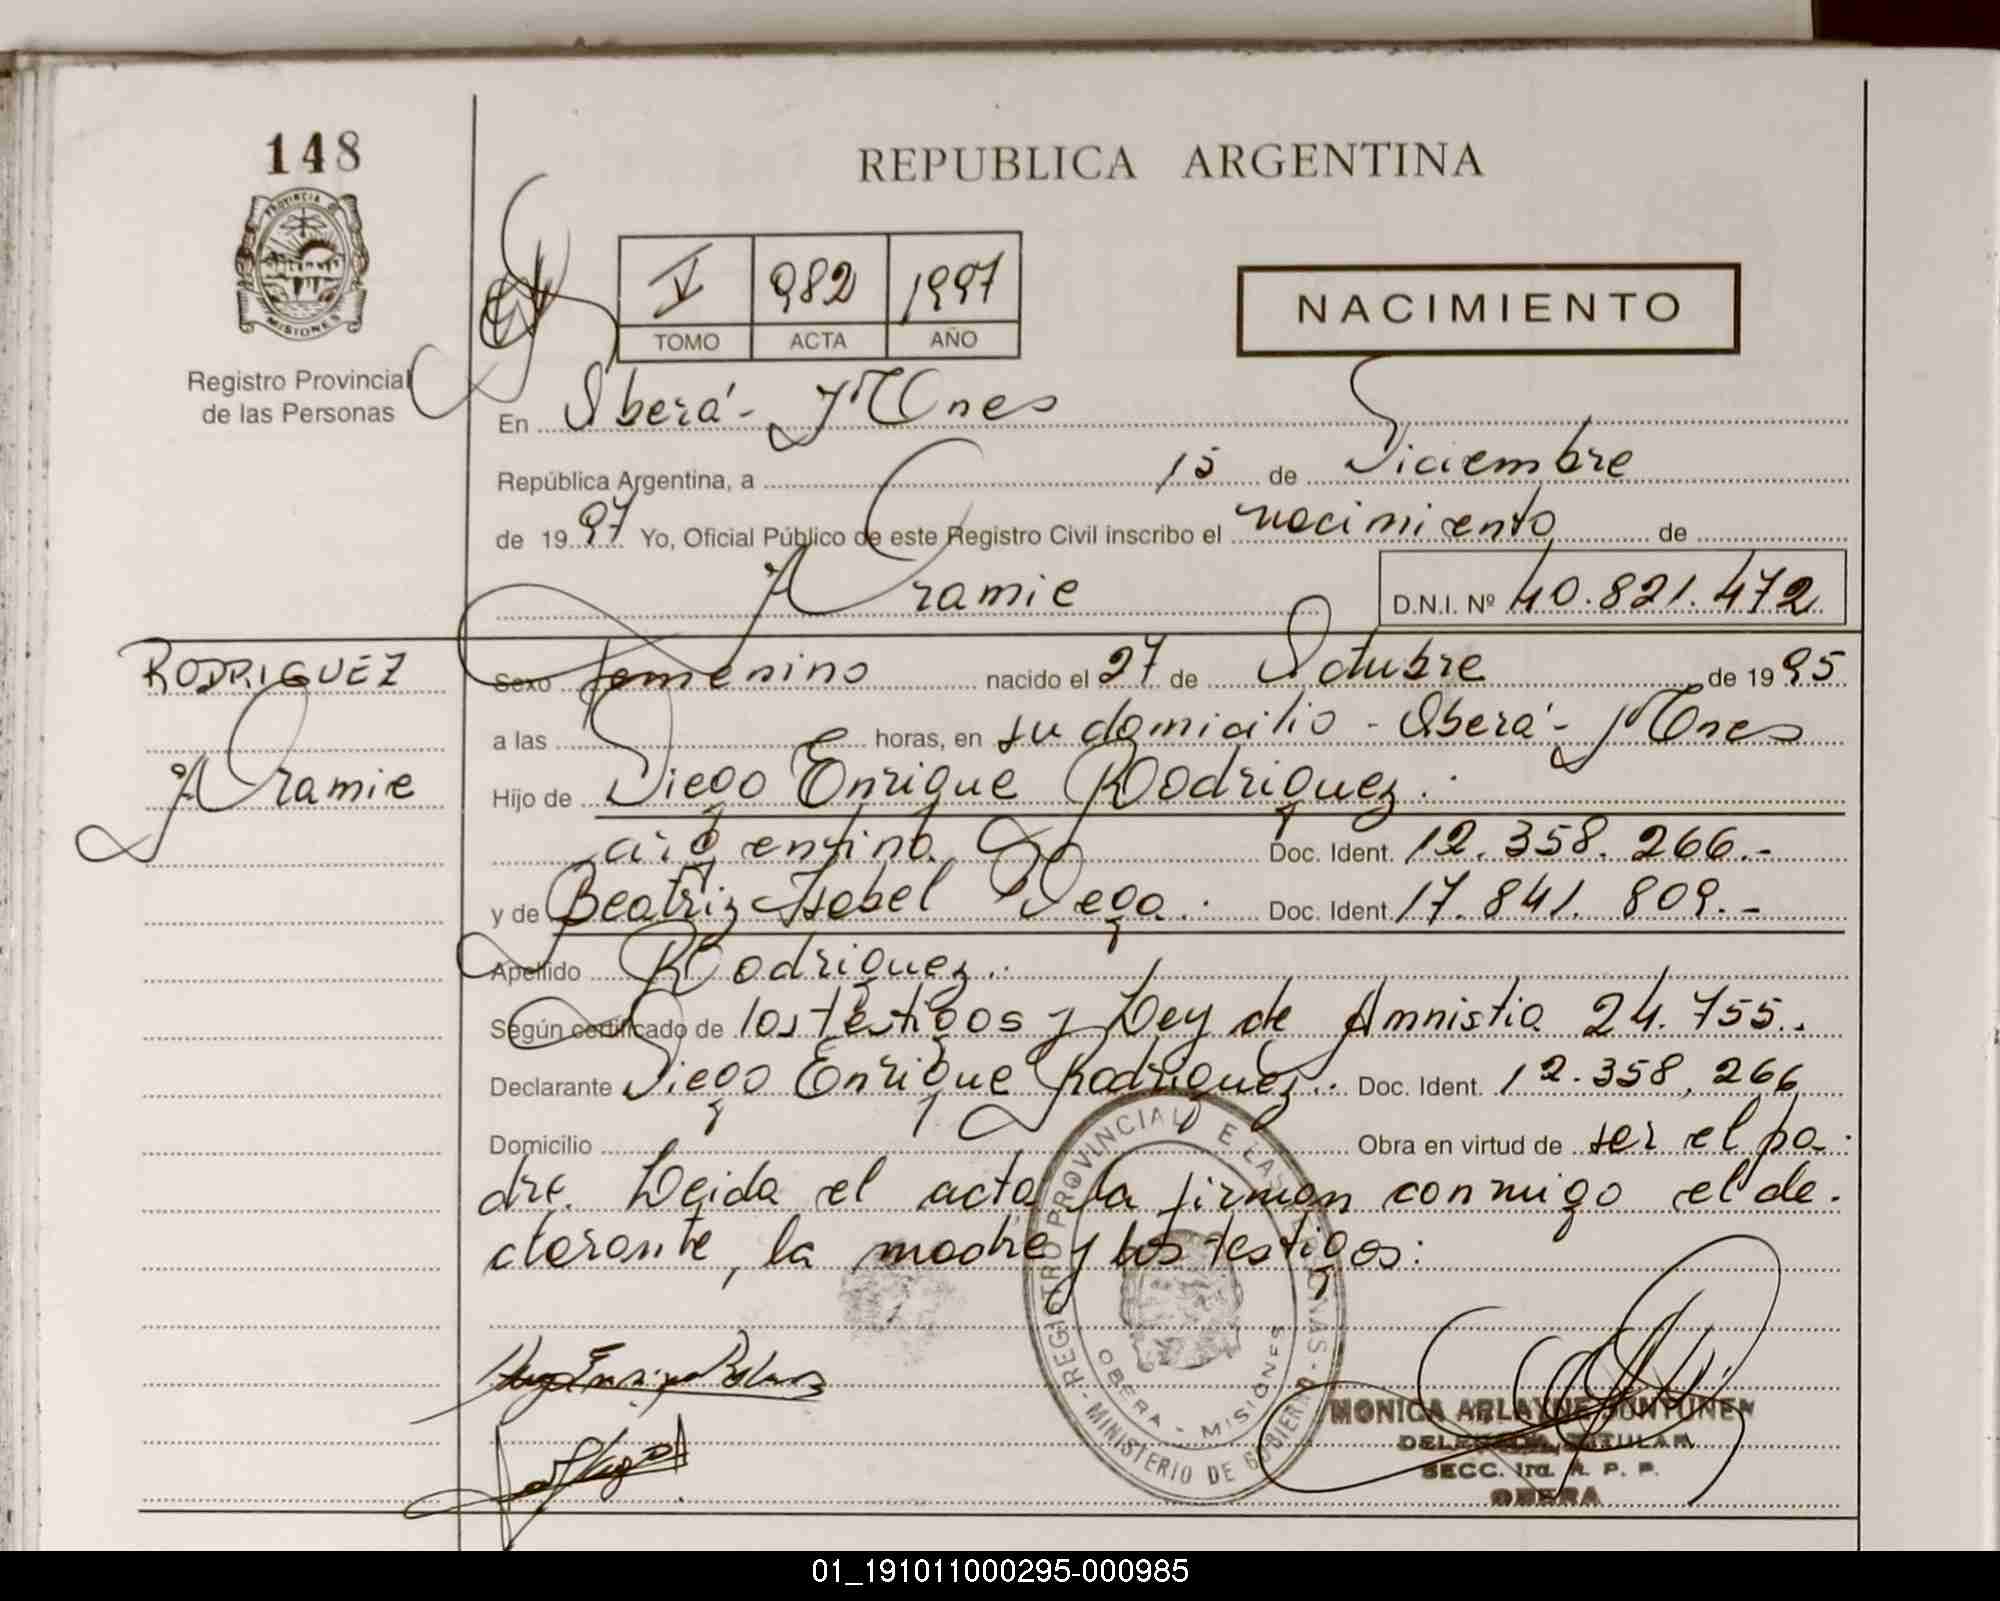 148
PROVINCIA DE
MISIONES
Registro Provincial
de las Personas
REPUBLICA ARGENTINA
V 982 1997
TOMO ACTA AÑO
NACIMIENTO
En Oberá - Mnes
República Argentina, a 15 de Diciembre
de 1997 Yo, Oficial Público de este Registro Civil inscribo el nacimiento de
Aramie D.N.I. Nº 40.821.472
RODRIGUEZ
Aramie
Sexo femenino nacido el 27 de Octubre de 1995
a las horas, en su domicilio - Oberá - Mnes
Hijo de Diego Enrique Rodriguez.
argentino Doc. Ident. 12.358.266.-
y de Beatriz Isabel Vega. Doc. Ident. 17.841.809.-
Apellido Rodriguez.
Según certificado de los testigos y Ley de Amnistia 24.755.
Declarante Diego Enrique Rodriguez. Doc. Ident. 12.358.266
Domicilio Obra en virtud de ser el pa
dre. Leida el acta la firman conmigo el de-
clarante, la madre y los testigos:
REGISTRO PROVINCIAL DE LAS PERSONAS - MINISTERIO DE GOBIERNO
OBERA - MISIONES
MONICA ARLAYNE JUNTUNEN
DELEGADA TITULAR
SECC. 1ra. R. P. P.
OBERA
01_191011000295-000985